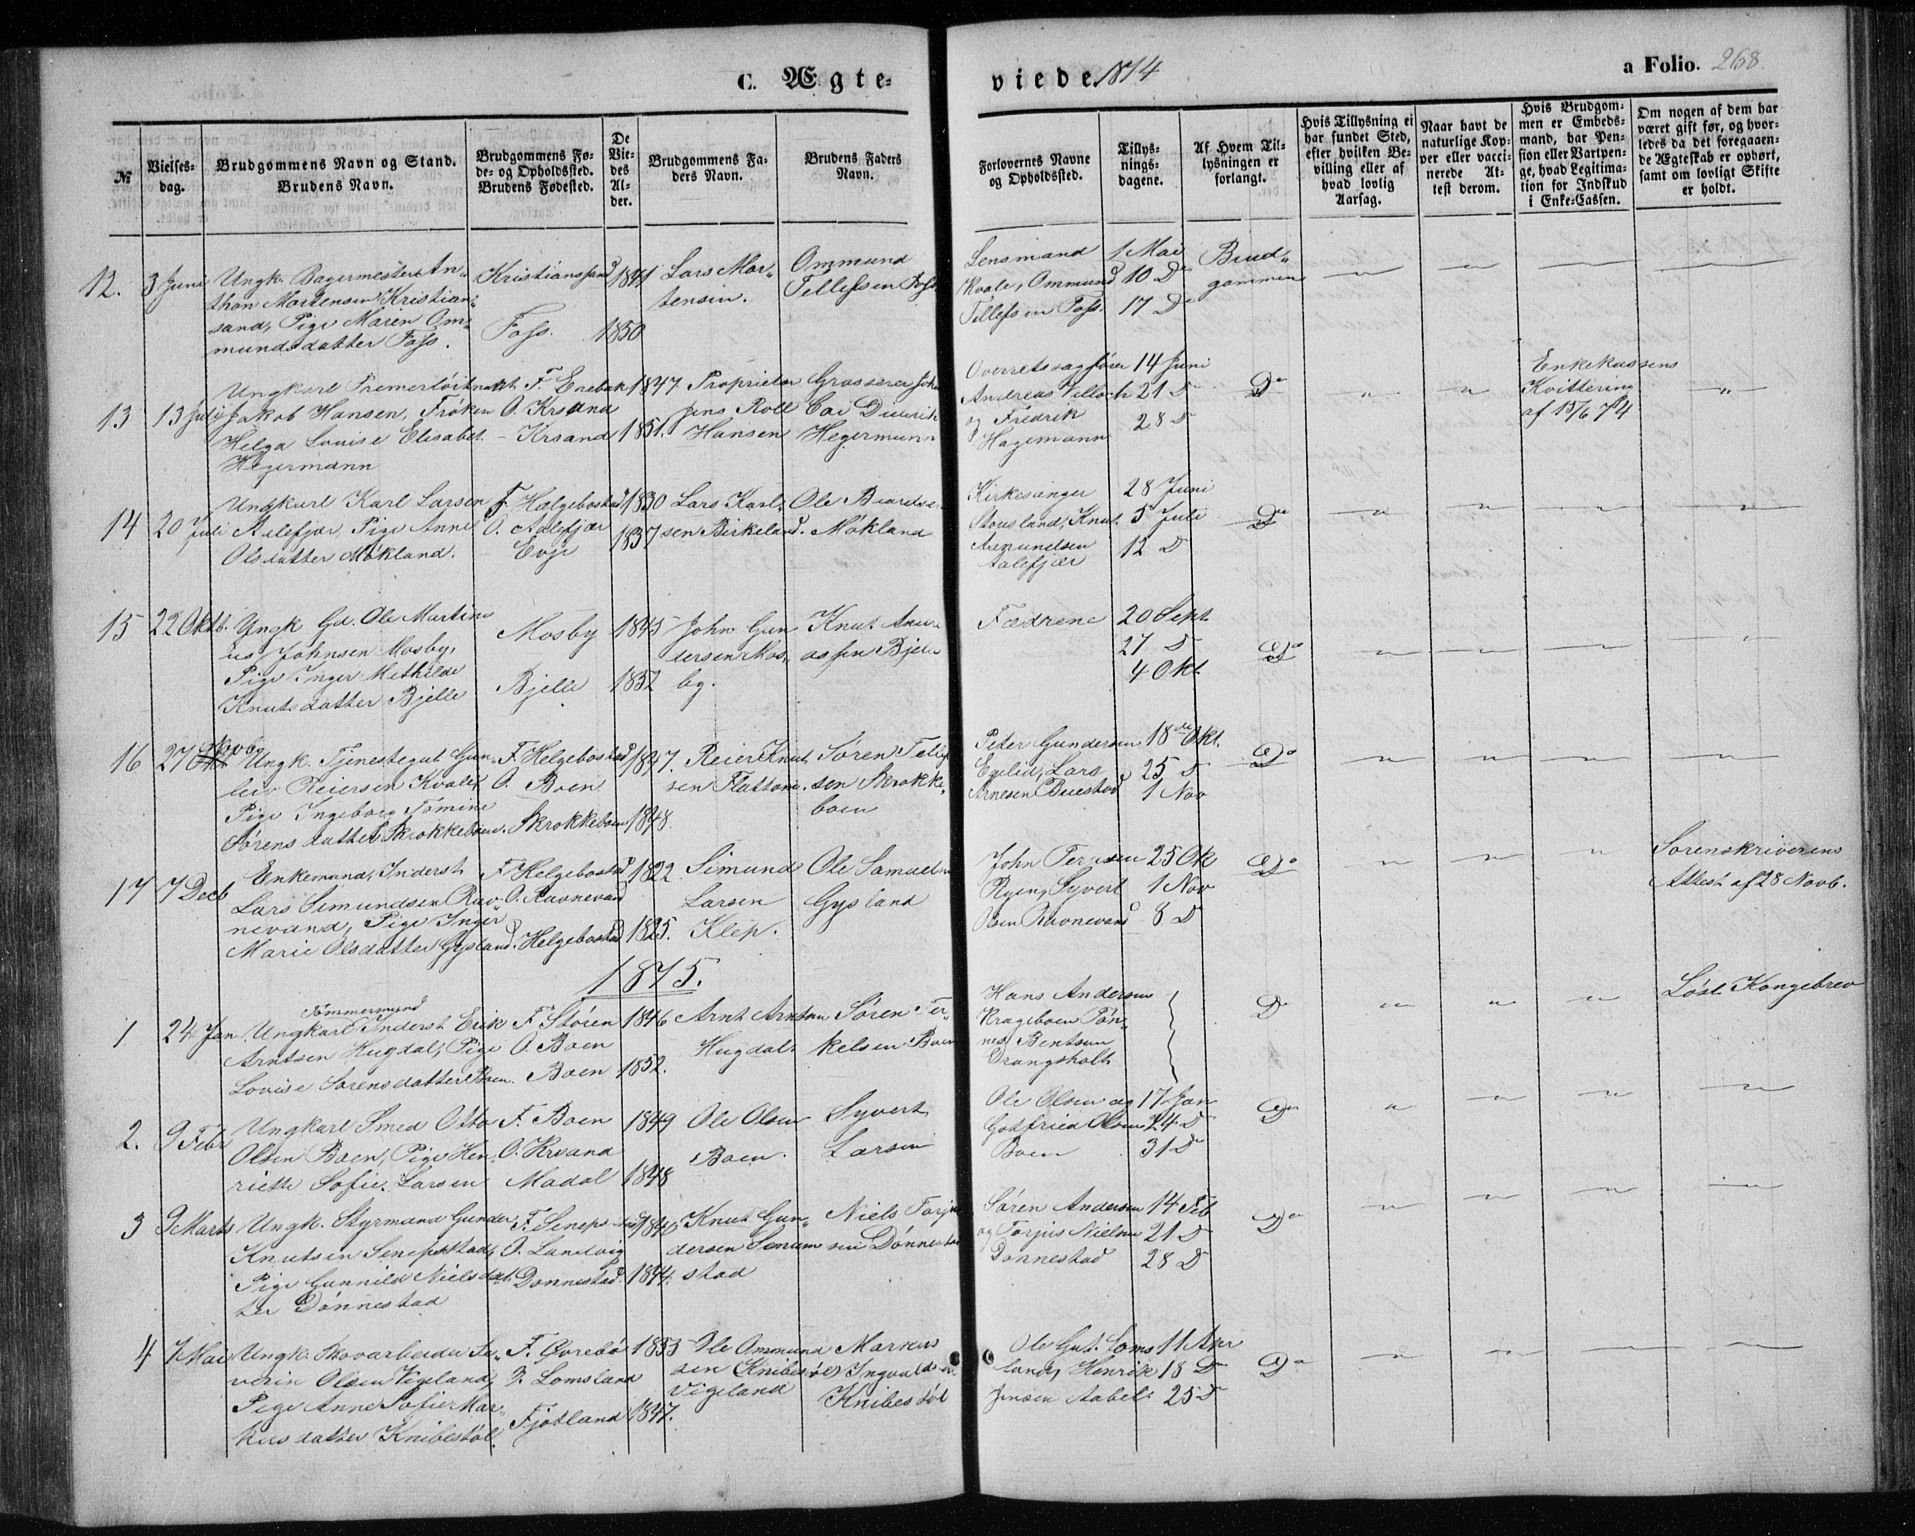 C. Ægte-
viede 1874
a Folio. 268.
№
Vielses-
dag.
Brudgommens Navn og Stand.
Brudens Navn.
Brudgommens Fø-
de- og Opholdssted.
Brudens Fødested.
De
Vie-
des
Al-
der.
Brudgommens Fa-
ders Navn.
Brudens Faders
Navn.
Forlovernes Navne
og Opholdssted.
Tillys-
nings-
dagene.
Af Hvem Til-
lysningen er
forlangt.
Hvis Tillysning ei
har fundet Sted,
efter hvilken Be-
villing eller af
hvad lovlig
Aarsag.
Naar havt de
naturlige Kop-
per eller vacci-
nerede At-
test derom.
Hvis Brudgom-
men er Embeds-
mand, har Pen-
sion eller Vartpen-
ge, hvad Legitima-
tion for Indskud
i Enke-Cassen.
Om nogen af dem har
været gift før, og hvor-
ledes da det foregaaen-
de Ægteskab er ophørt,
samt om lovligt Skifte
er holdt.
12. 3 Juni
Ungk. Bagermester An-
thon Mortensen Kristian-
sand, Pige Maren Om-
mundsdatter Foss.
Kristianssand
Foss.
1841
1850
Lars Mor-
tensen.
Ommund
Tellefsen Foss
Lensmand
Kvale, Ommund
Tellefsen Foss.
1 Mai
10 Do
17 Do
Brud-
gommen
13 13 Juli
Jakob Hansen, Frøken
Helga Louise Elisabet
Hegermann
F. Enebak
O. Krsand
- Krsand
1847.
1851.
Proprietær
Jens Roll
Hansen
Grosserer
Cai Diderik
Hegermann
Overretssagfører
Andreas
og Fredrik
Hagemann
14 Juni
21 D
28 D
Do
Enkekassens
Kvittering
af 15/6 74
14 20 Juli
Ungkarl Karl Larsen
Aalefjær, Pige Anne
Olsdatter Møkland.
F. Hægebostad
O. Aalefjær
Evje
1830
1837
Lars Karl-
sen Birkeland.
Ole
Møkland
Kirkesanger
Stousland, Knut
Asmundsen
Aalefjær
28 Juni
5 Juli
12 D
Do
15 22 Oktb.
Ungk Gd. Ole Martin-
us Johnsen Mosby,
Pige Inger Mathilde
Knutsdatter Bjelle
Mosby
Bjelle
1845
1852
John Gun
dersen Mos-
by.
Knut
Bjel-
Fædrene
20 Sept
27 D
4 Okt
Do
16 27
Ungk. Tjenestegut Gun-
leiv Reiersen Kvale,
Pige Ingeborg Tomine
Sørensdatter Skrokkeboen.
F. Helgebostad
O. Boen
Skrokkeboen
1847.
1848.
Reier Knut
sen Flottorp.
Søren Tellef
sen Skrokke-
boen
Peter Gundersen
Egelid, Lars
Arnesen Duestad
18de Okt.
25 D
1 Nov
Do
17 7 Decb
Enkemand, Inderst
Lars Simundsen Rav-
nevand, Pige Inger
Marie Olsdatter Gysland.
F. Helgebostad
O. Ravnevand
Helgebostad
1822
1825.
Simund
Larsen
Klep.
Ole Samuelsen
Gysland
John Terjesen
Ryen, Syvert
Olsen Ravnevand
25 Ok
1 Nov
8 D
Do
Sorenskriverens
Attest af 28 Novb.
1875.
1 24 Jan
Tømmermand
Ungkarl Inderst Erik
Arntsen Hugdal, Pige
Lovise Sørensdatter Boen.
F. Støren
O. Boen
Boen
1846
1852.
Arnt Arntsen
Hugdal
Søren Ter-
kelsen Boen
Hans Andersen
Krageboen Tøn-
nes Bentsen
Drangsholt
D
Løst Kongebrev
2. 9 Febr
Ungkarl Smed Otto
Olsen Boen, Pige Hen-
riette Sofie Larsen
F. Boen
O. Krsand
Madal
1849
1848
Ole Olsen
Boen.
Syvert
Larsen
Ole Olsen og
Gotfried Olsen
Boen
17 Jan
24 D
31 D
Do
3 9 Marts
Ungk. Styrmand Gunder
Knutsen Senepstad,
Pige Gunnild Nielsdat-
ter Dønnestad
F. Senepstad
O. Landvig
Dønnestad
1840
1844.
Knut Gun-
dersen Senum
stad
Niels Torju
sen Dønnestad
Søren Andersen
og Torjus Nielsen
Dønnestad
14 Feb
21 D
28 D
Do
4 7 Mai
Ungk. Skovarbeider Se-
verin Olsen Vigeland,
Pige Anne Sofie Mar-
kusdatter Knibestøl.
F. Øvrebø
O. Lomsland
Fjotland
1853
1847.
Ole Ommund
sen Knibestøl
Vigeland
Markus
Ingvaldsen
Knibestøl
Ole Gut. Loms-
land, Henrik
Jensen Aabel
11 Apr
18 D
25 D
Do